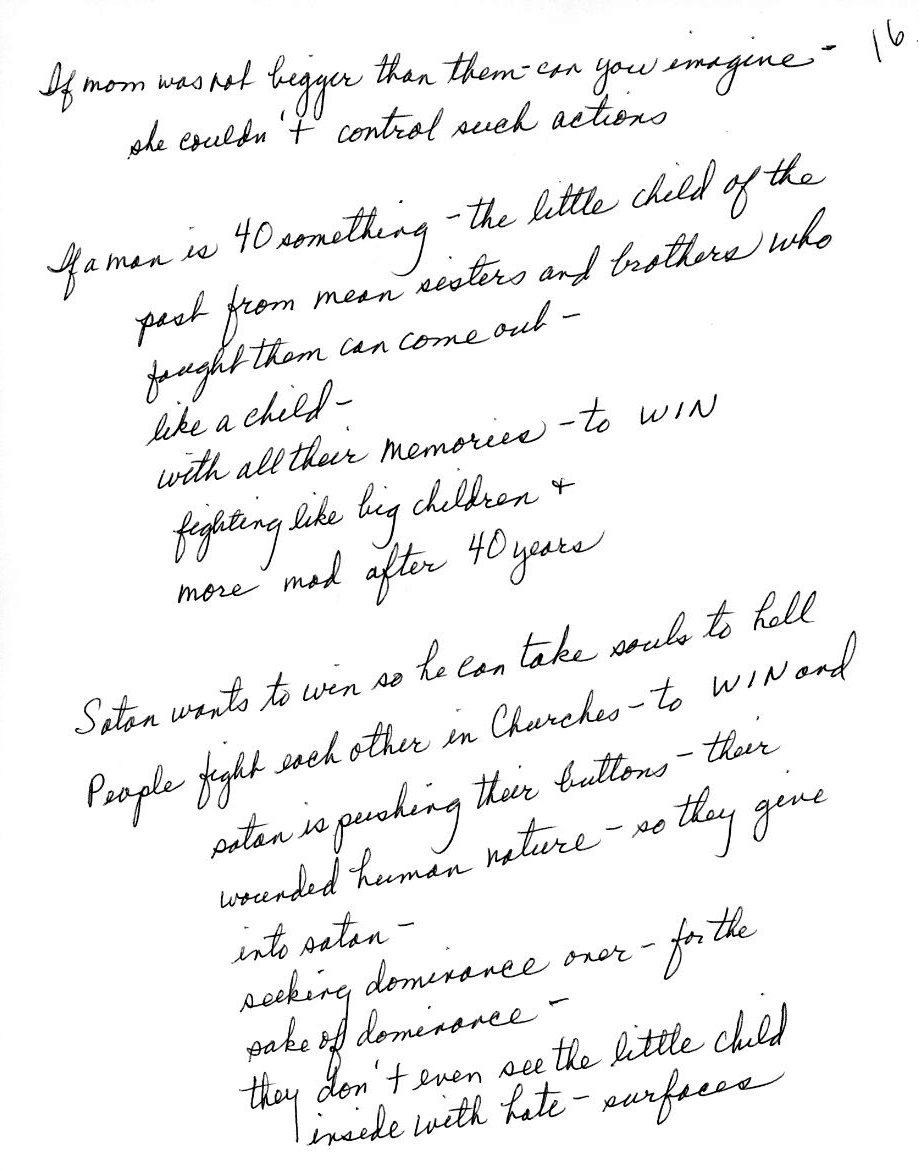 16.
If mom was not bigger than them - can you imagine -
she couldn't control such actions
If a man is 40 something - the little child of the
past from mean sisters and brothers who
fought them can come out -
like a child -
with all their memories - to WIN
fighting like big children +
more mad after 40 years
Satan wants to win so he can take souls to hell
People fight each other in Churches - to WIN and
satan is pushing their buttons - their
wounded human nature - so they give
into satan -
seeking dominance over - for the
sake of dominance -
they don't even see the little child
inside with hate - surfaces